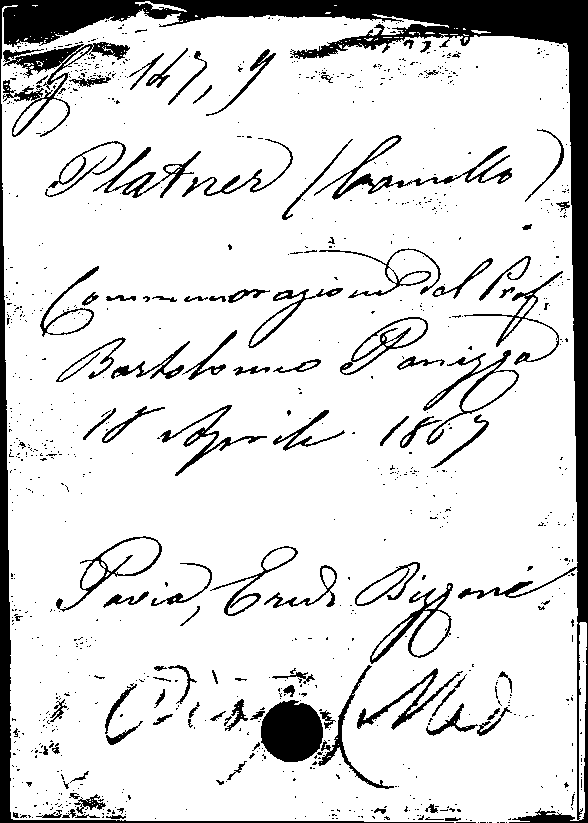 G 147, 9
Platner (Camillo)
Commemorazione del Prof.
Bartolomeo Panizza
18 Aprile 1867
Pavia, Eredi Bizzoni
(Med